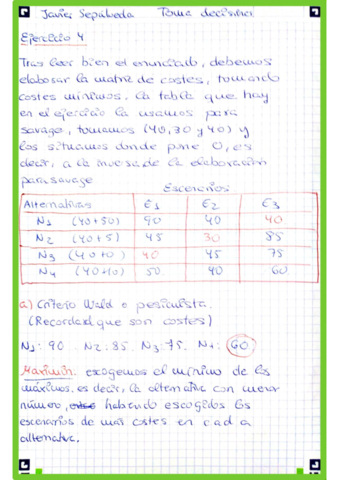 Javier Sepúlveda Toma decisiones
Ejercicio 4
Tras leer bien el enunciado, debemos
elaborar la matriz de costes, tomando
costes mínimos. La tabla que hay
en el ejercicio la usamos para
savage, tomamos (40,30 y 40) y
los situamos donde pone 0, es
decir, a la inversa de la elaboración
para savage
Escenarios
Alternativas E1 E2 E3
N1 (40+50) 90 40 40
N2 (40+5) 45 30 85
N3 (40+0) 40 45 75
N4 (40+10) 50 40 60
a) Criterio Wald o pesimista.
(Recordad que son costes)
N1: 90 N2: 85 N3: 75 N4: 60
Maximin: escogemos el mínimo de los
máximos, es decir, la alternativa con menor
número, habiendo escogidos los
escenarios de más costes en cada
alternativa.